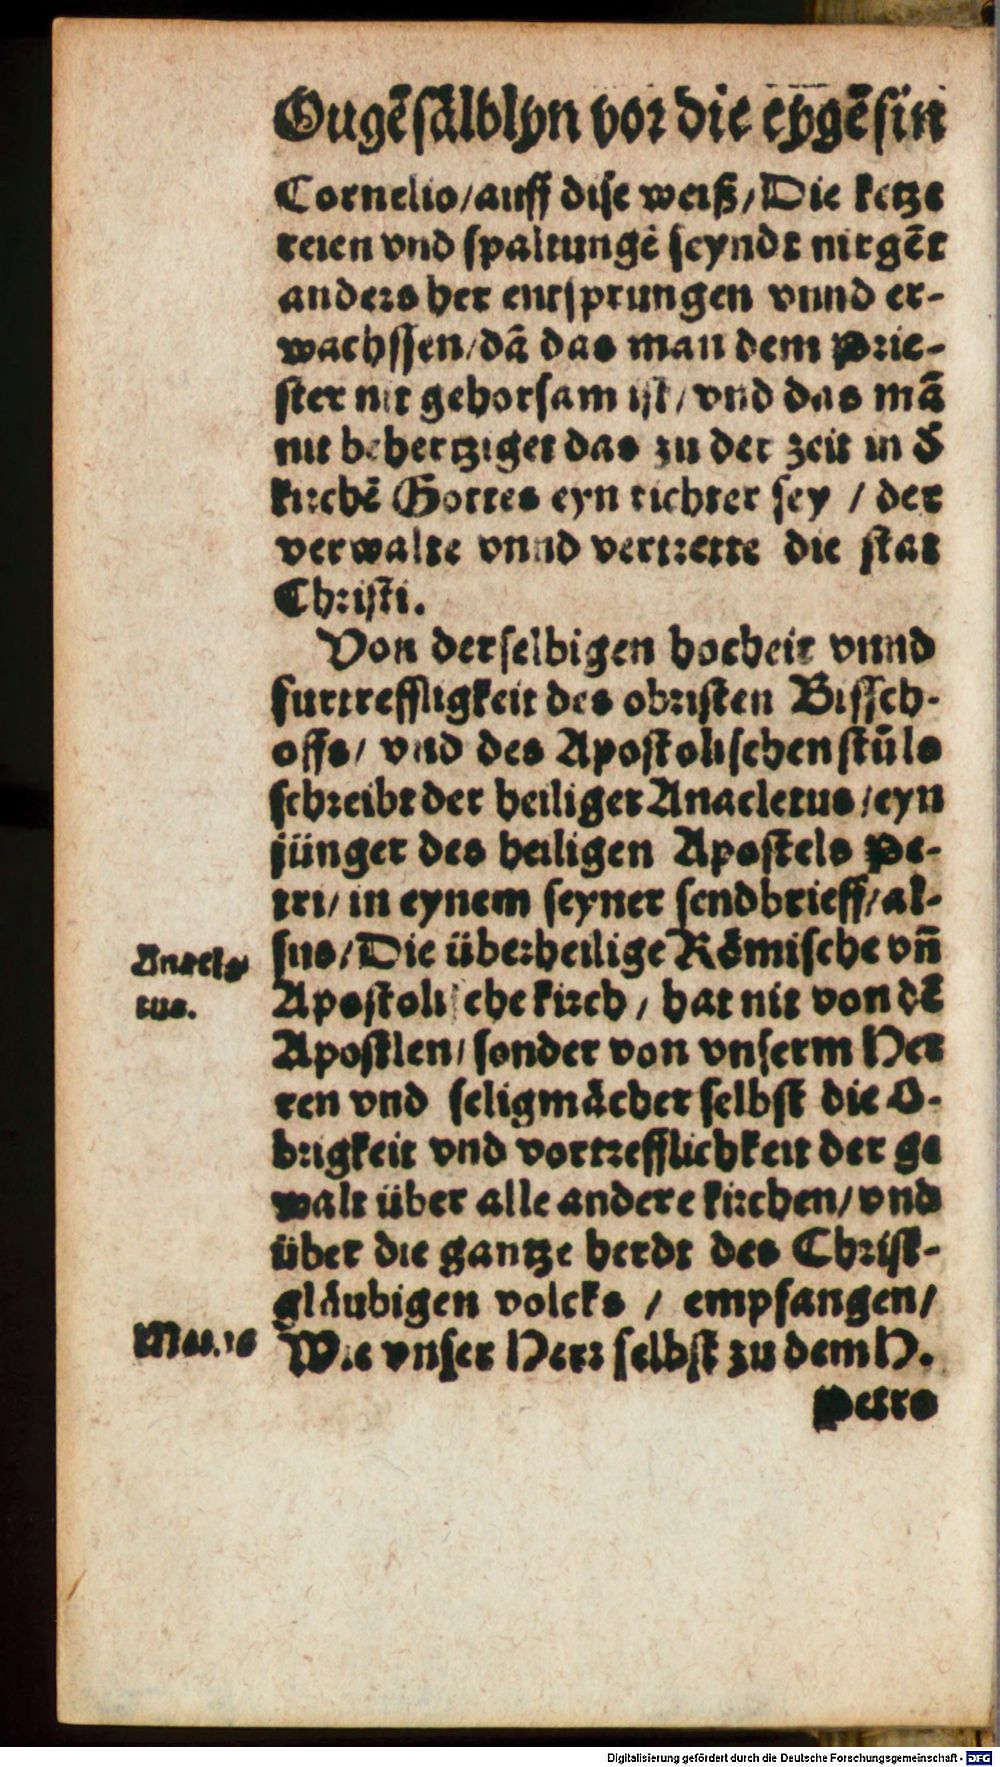 Ougẽsälblyn vor die eygẽsin
Cornelio/auff dise weiß/Die ketze
reien vnd spaltungẽ seyndt nirgẽt
anders her entsprungen vnnd er-
wachssen/dã das man dem Prie-
ster nit gehorsam ist/vnd das mã
nit behertziget das zu der zeit in d̃
kirchẽ Gottes eyn richter sey / der
verwalte vnnd vertrette die stat
Christi.
Von derselbigen hocheit vnnd
furtreffligkeit des obristen Bissch-
offs/ vnd des Apostolischen stůls
schreibt der heiliger Anacletus/eyn
jünger des heiligen Apostels Pe-
tri/ in eynem seyner sendbrieff/al-
sus/Die überheilige Römische vñ
Anacle
tus.
Apostolische kirch / hat nit von dẽ
Apostlen/ sonder von vnserm Her
ren vnd seligmächer selbst die O-
brigkeit vnd vortrefflichkeit der ge
walt über alle andere kirchen/vnd
über die gantze herdt des Christ-
gläubigen volcks / empfangen/
Mat.16
Wie vnser Herr selbst zu dem H.
Petro
Digitalisierung gefördert durch die Deutsche Forschungsgemeinschaft - DFG